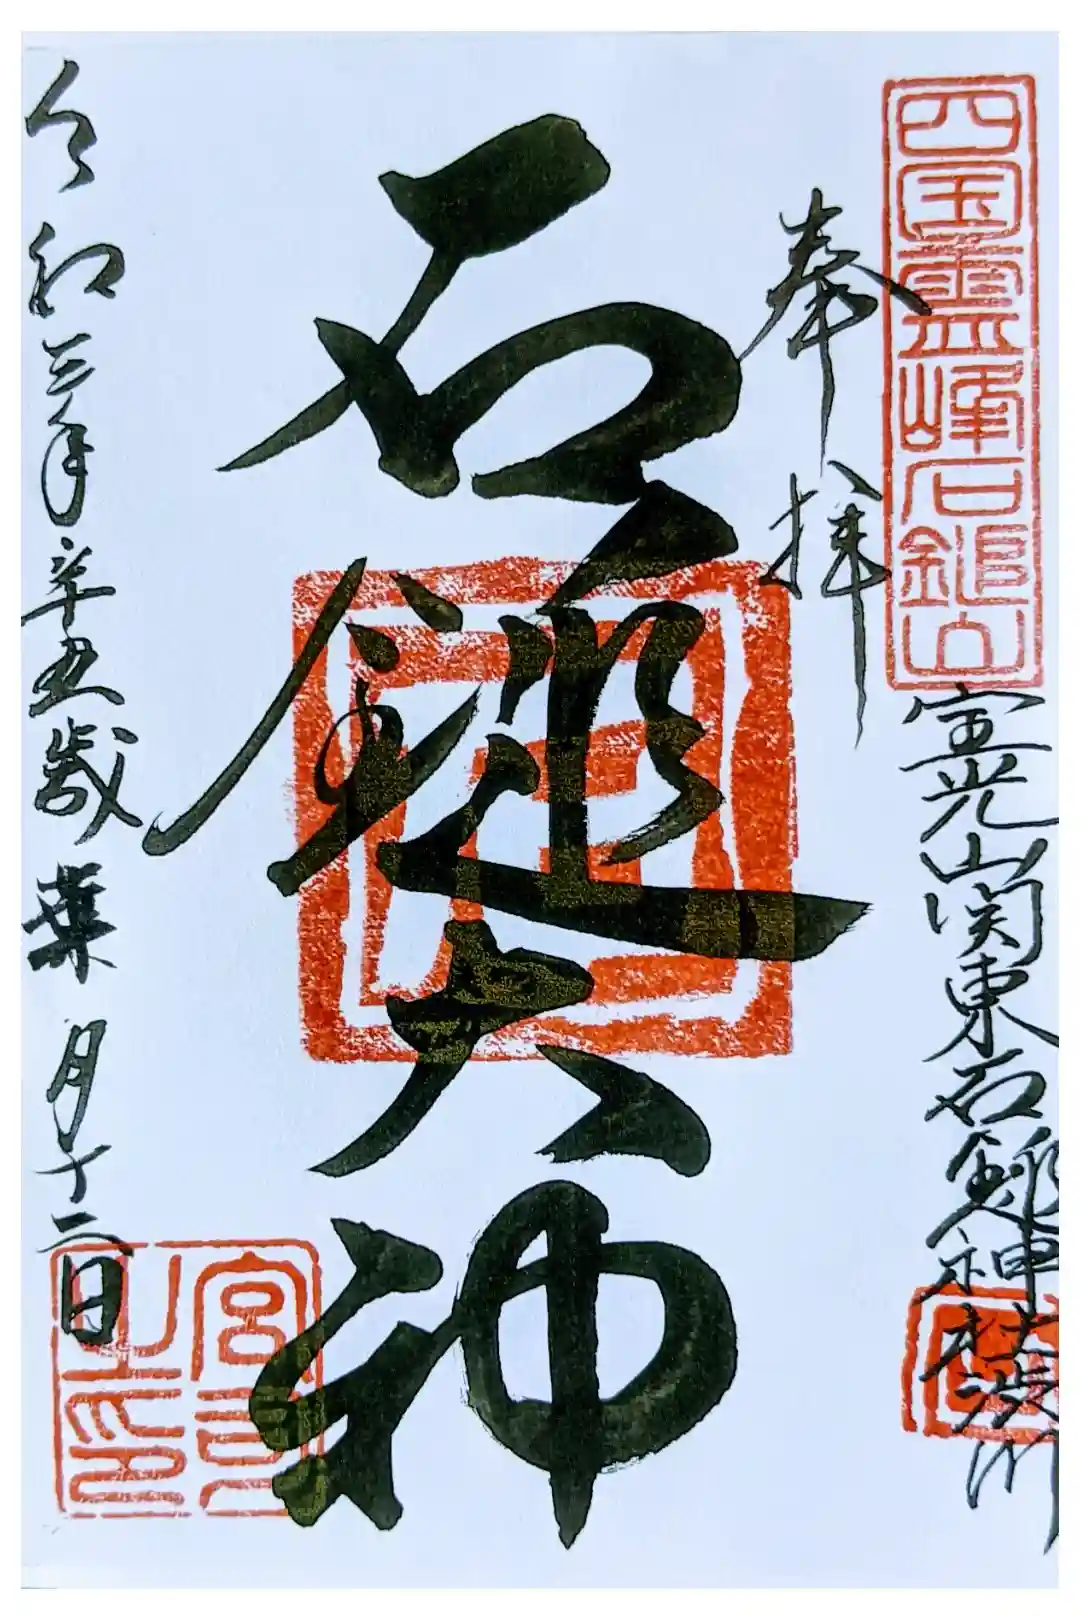 四国霊峰石鎚山
宝光山関東石鎚神社
奉拝
石鎚大神
令和三年辛丑歳葉月十二日
宮司之印